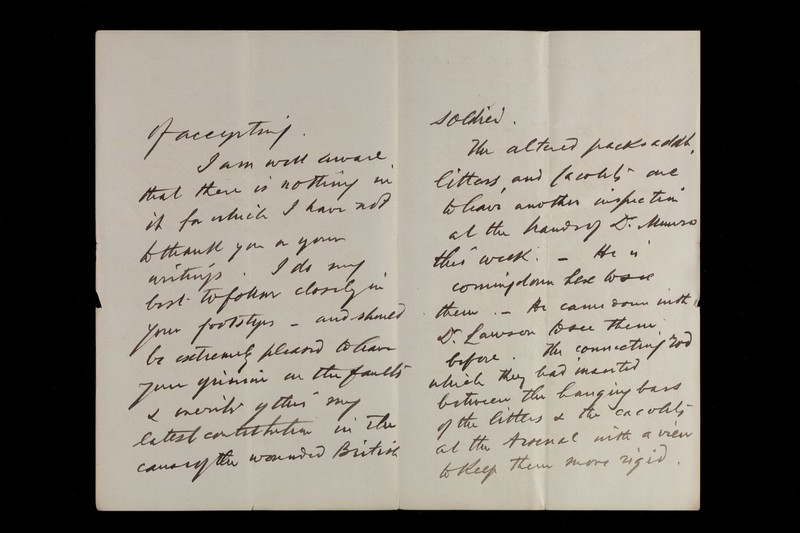 of accepting.
I am well aware
that there is nothing in
it for which I have not
to thank you or your
writings. I do my
best to follow closely in
your footsteps - and should
be extremely pleased to have
your opinion on the faults
& merits of this my
latest contribution in the
cause of the wounded British
soldier.
The altered packsaddle,
litters, and cacolets are
to have another inspection
at the hands of Dr. Munro
this week. - He is
coming down here to see
them. - He came down with
Dr. Lawson to see them
before. The connecting rod
which they had inserted
between the hanging bars
of the litters & the cacolets
at the Arsenal with a view
to keep them more rigid.